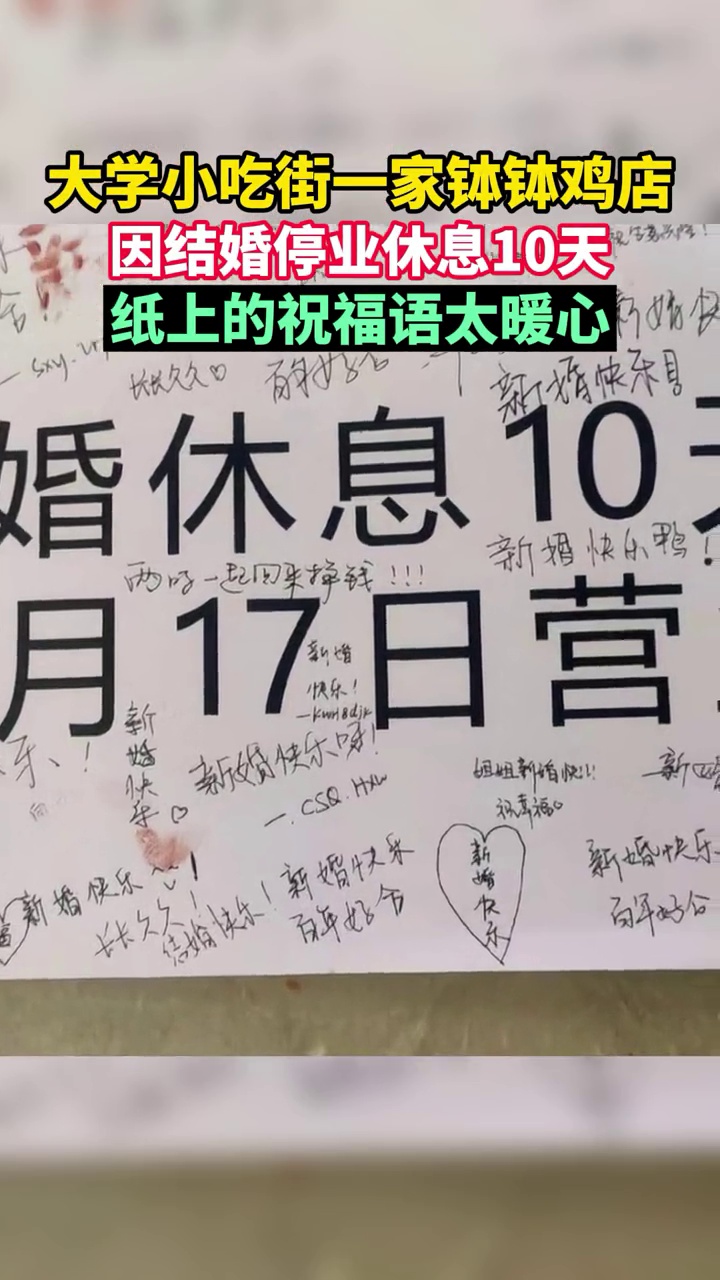 大学小吃街一家钵钵鸡店
因结婚停业休息10天
纸上的祝福语太暖心
长长久久
百年好合
新婚快乐
婚休息10天
新婚快乐鸭!
两口一起回来挣钱!!!
月17日营
新婚
快乐!
新婚快乐
新婚快乐呀!
—CSQ.Hxw
姐姐新婚快!!
祝幸福
新婚快乐
长长久久!
结婚快乐!
新婚快乐
百年好合
新婚快乐
新婚快乐
百年好合